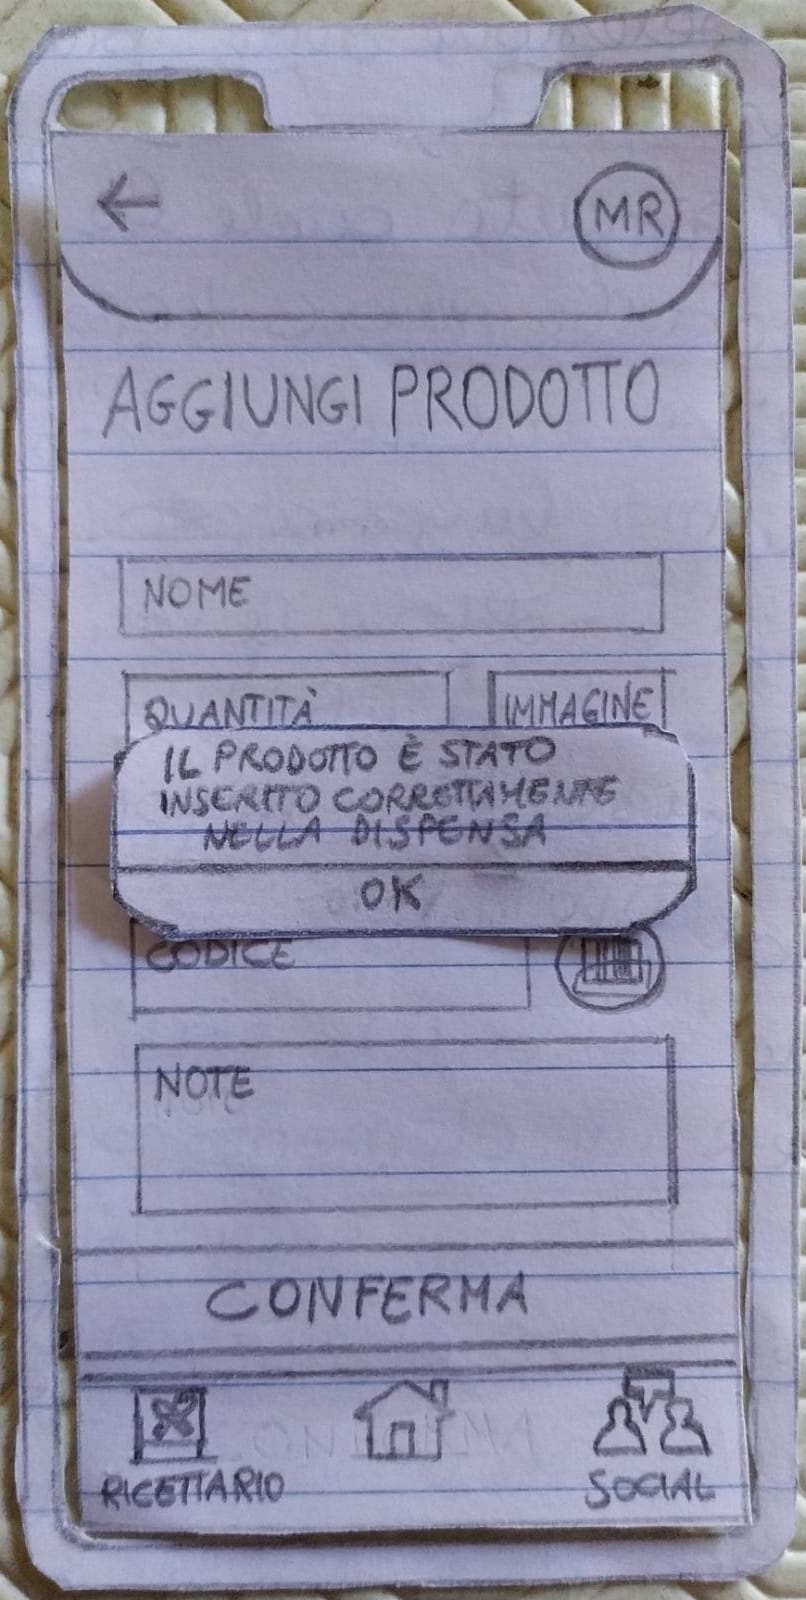 MR
AGGIUNGI PRODOTTO
NOME
QUANTITÀ
IMMAGINE
IL PRODOTTO È STATO
INSERITO CORRETTAMENTE
NELLA DISPENSA
OK
CODICE
NOTE
CONFERMA
RICETTARIO
SOCIAL